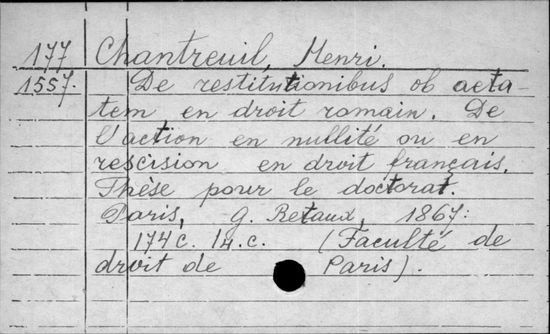 177 Chantreuil, Henri.
1557. De restitutionibus ob aeta-
tem en droit romain. De
l'action en nullité ou en
rescision en droit français.
Thèse pour le doctorat.
Paris, G. Retaux, 1867.
174 c. 14.c. (Faculté de
droit de Paris).